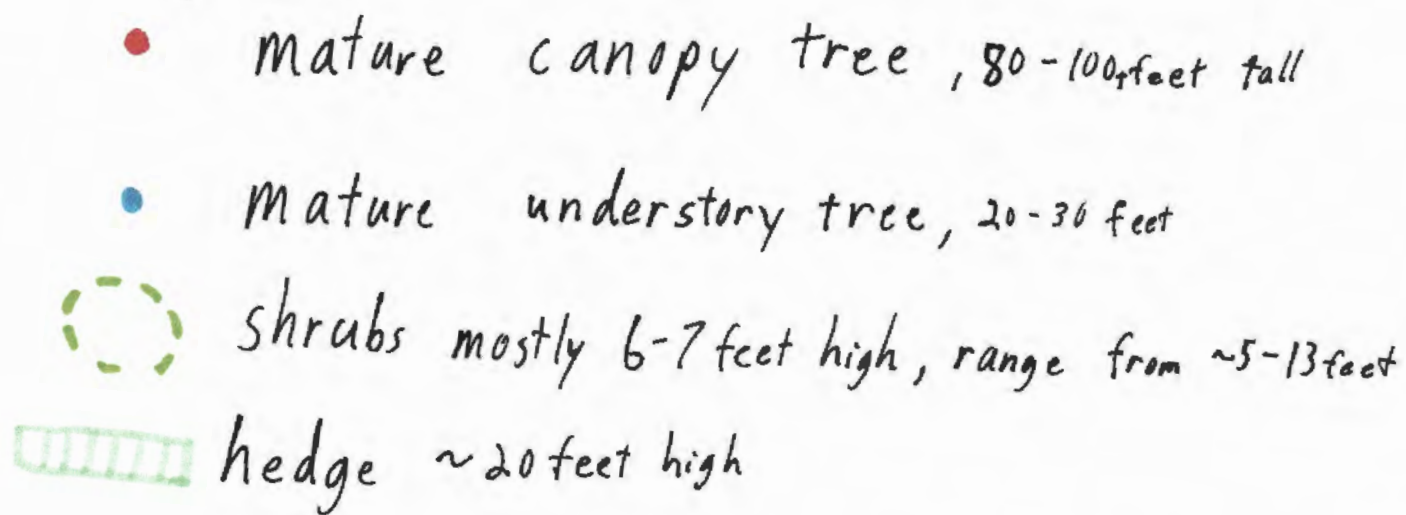 mature canopy tree, 80-100+feet tall
mature understory tree, 20-30 feet
shrubs mostly 6-7 feet high, range from ~5-13 feet
hedge ~20 feet high